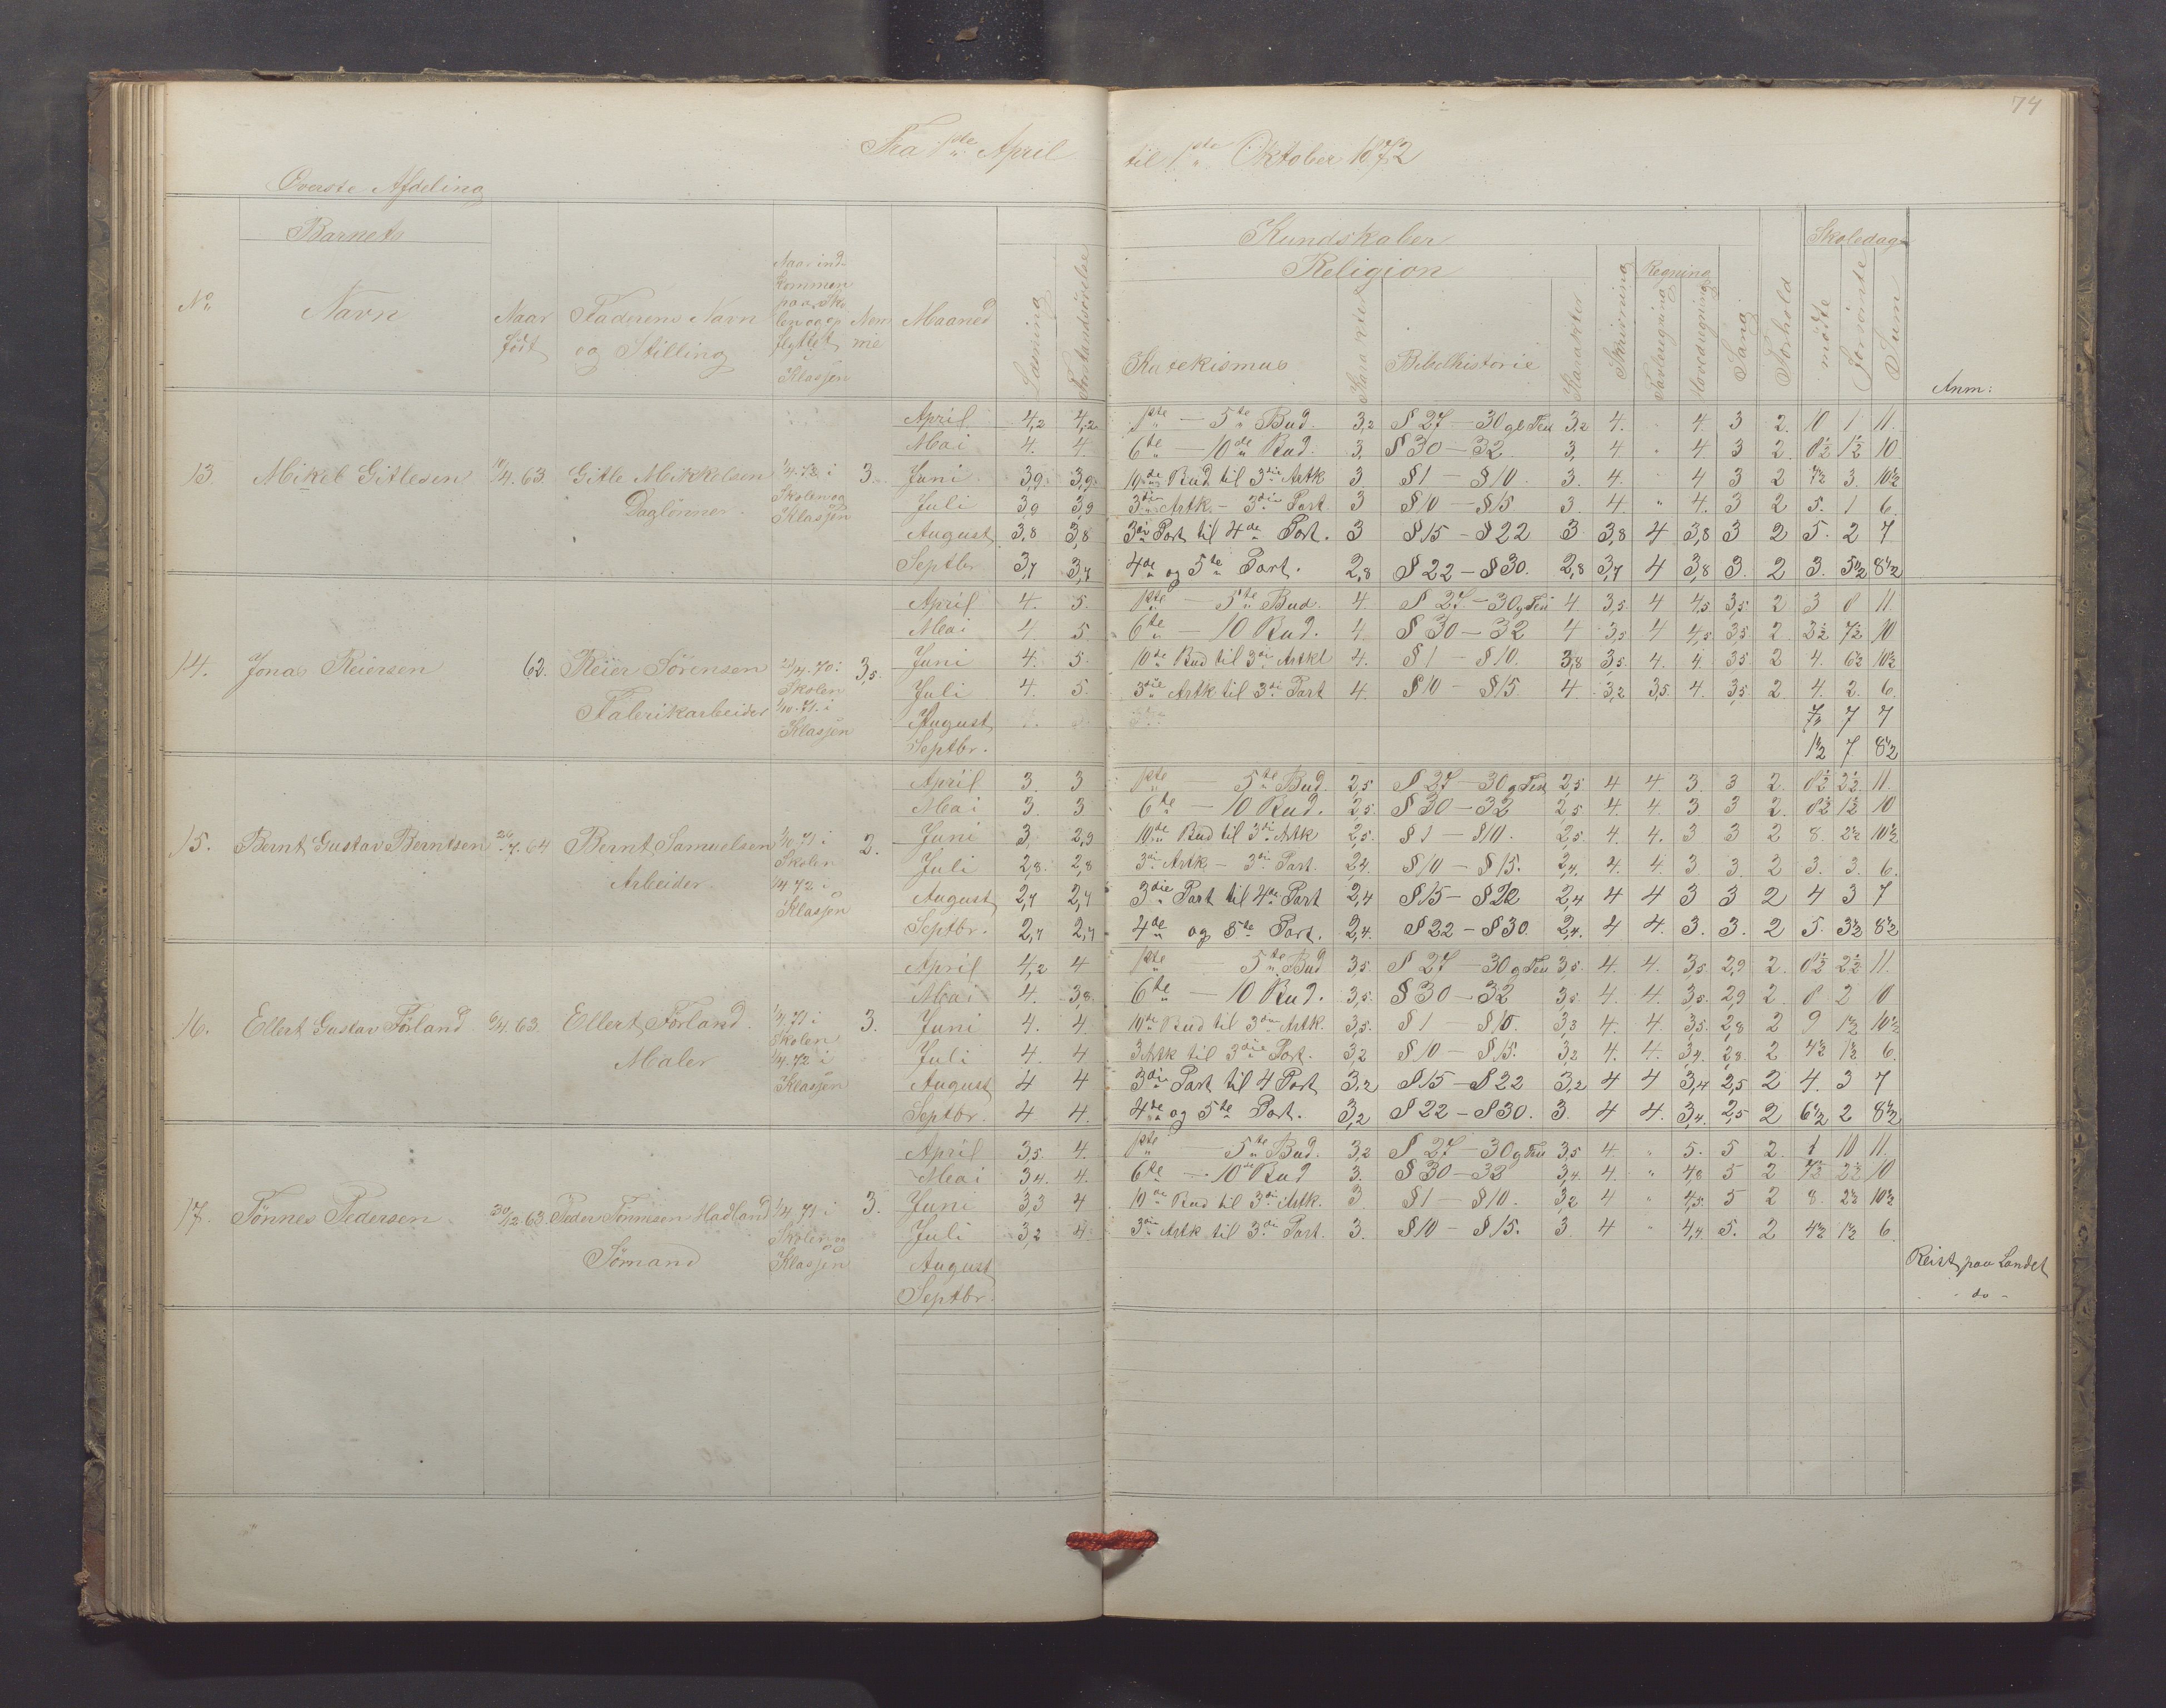 74
Fra 1ste April til 1ste Oktober 1872
Øverste Afdeling
Barnets
Kundskaber
Skoledage
Religion
Regning
No
Navn
Naar født
Faderens Navn og Stilling
Naar ind-
kommen
paa Sko
len og op
flyttet
i
Klassen
Maaned
Læsning
Forstandsøvelse
Katekismus
Karakter
Bibelhistorie
Karakter
Skrivning
Tavleregning
Hovedregning
Sang
Forhold
mødte
forsømte
Sum
Anm:
April 4,2 4,2 1ste — 5te Bud. 3,2 § 27 — 30 3,2 4. " 4. 3 2. 10 1 11.
Mai 4. 4. 6te — 10de Bud. 3, § 30 — 32. 3, 4 " 4 3 2. 8½ 1½ 10
13. Mikel Gitlesen 4. 63. Gitle Mikkelsen 1/4. 72 i 3. Juni 3,9 3,9 10de Bud til 3die Artk 3. § 1 — § 10. 3. 4. 4 3 2 7½ 3. 10½
Daglønner. Skolen og Klassen Juli 3,9 3,9 3die Artk. — 3die Part 3 § 10 — § 15 3. 4. " 4. 3 2 5. 1 6.
August 3,8 3,8 3die Part til 4de Part. 3 § 15 – § 22 3 3,8 4 3,8 3 2 5. 2 7
Septbr 3,7 3,7 4de og 5te Part. 2,8 § 22 – § 30. 2,8 3,7 4 3,8 3. 2 3. 5½ 8½
April 4. 5. 1ste — 5te Bud. 4. § 27 — 30 4. 3,5 4 4,5 3,5 2 3 8 11.
Mai 4. 5. 6te — 10 Bud. 4. § 30 — 32 4 3,5 4 4,5 3,5 2. 2½ 7½ 10
14. Jonas Reiersen 62. Reier Sørensen 4. 70 i 3,5. Juni 4. 5. 10de Bud til 3die Artkl 4. § 1 — § 10. 3,8 3,5. 4. 4. 3,5. 2 4. 6½ 10½
Fabrikarbeider Skolen 1/10. 71. i Klassen Juli 4. 5. 3die Artk til 3die Part 4. § 10 — § 15. 4. 3,2 3,5. 4. 3,5 2 4. 2. 6.
August 7 7
Septbr. 1½ 7 8½
April 3. 3 1ste 5te Bud. 2,5 § 27 — 30 2,5. 4 4. 3. 3 2. 8½ 2½ 11.
Mai 3. 3 6te — 10 Bud. 2,5. § 30 — 32 2,5. 4. 4. 3 3 2. 8½ 1½ 10
15. Bernt Gustav Berntsen 7. 64 Bernt Samuelsen 1/10 71 i 2. Juni 3, 2,9 10de Bud til 3die Artk 2,5. § 1 — § 10. 2,5. 4. 4. 3 3 2 8. 2½ 10½
Arbeider. Skolen 1/4 72 i Klassen Juli 2,8. 2,8 3die Artk — 3die Part. 2,4. § 10 — § 15. 2,4. 4. 4. 3. 3. 2 3. 3. 6.
August 2,7 2,7 3die Part til 4de Part 2,4 § 15 – § 22 2,4 4 4 3 3 2 4 3 7
Septbr. 2,7 2,7 4de og 5te Part. 2,4. § 22 – § 30. 2,4. 4 4. 3. 3. 2 5. 3½ 8½
April 4,2 4 1ste — 5te Bud 3,5. § 27 — 30 3,5. 4. 4. 3,5 2,9 2. 8½ 2½ 11.
Mai 4. 3,8. 6te — 10 Bud. 3,5. § 30 — 32 3,5 4. 4. 3,5. 2,9 2. 8 2 10
16. Ellert Gustav Førland 4. 63. Ellert Førland. 1/4. 71 i 3. Juni 4. 4. 10de Bud til 3die Artk. 3,5. § 1 — § 10. 3,3 4. 4. 3,5. 2,8 2 9 1½ 10½
Maler Skolen 1/4. 72 i Klassen Juli 4. 4 3 Artk til 3die Part. 3,2 § 10 — § 15. 3,2 4. 4. 3,4. 2,8. 2 4½ 1½ 6.
August 4 4 3die Part til 4 Part 3,2 § 15 – § 22 3,2 4 4 3,4 2,5 2 4. 3 7
Septbr. 4 4. 4de og 5te Part. 3,2 § 22 – § 30. 3. 4 4. 3,4. 2,5 2 6½ 2 8½
April 3,5. 4. 1ste — 5te Bud. 3,2 § 27 — 30 3,5 4. " 5. 5 2. 1 10 11.
Mai 3,4. 4. 6te — 10de Bud 3. § 30 — 32 3,4. 4. " 4,8 5 2 7½ 2½ 10
17. Tønnes Pedersen. 30/12 63. Peder Tønnesen Hadland 1/4 71 i 3. Juni 3,3 4 10de Bud til 3die Artk. 3 § 1 — § 10. 3,2 4 " 4,5. 5 2 8. 2½ 10½
Sømand Skolen og Klassen Juli 3,2 4. 3die Artk til 3die Part. 3. § 10 — § 15. 3 4 " 4,4 5. 2 4½ 1½ 6.
August Reist paa Landet
Septbr. - do -